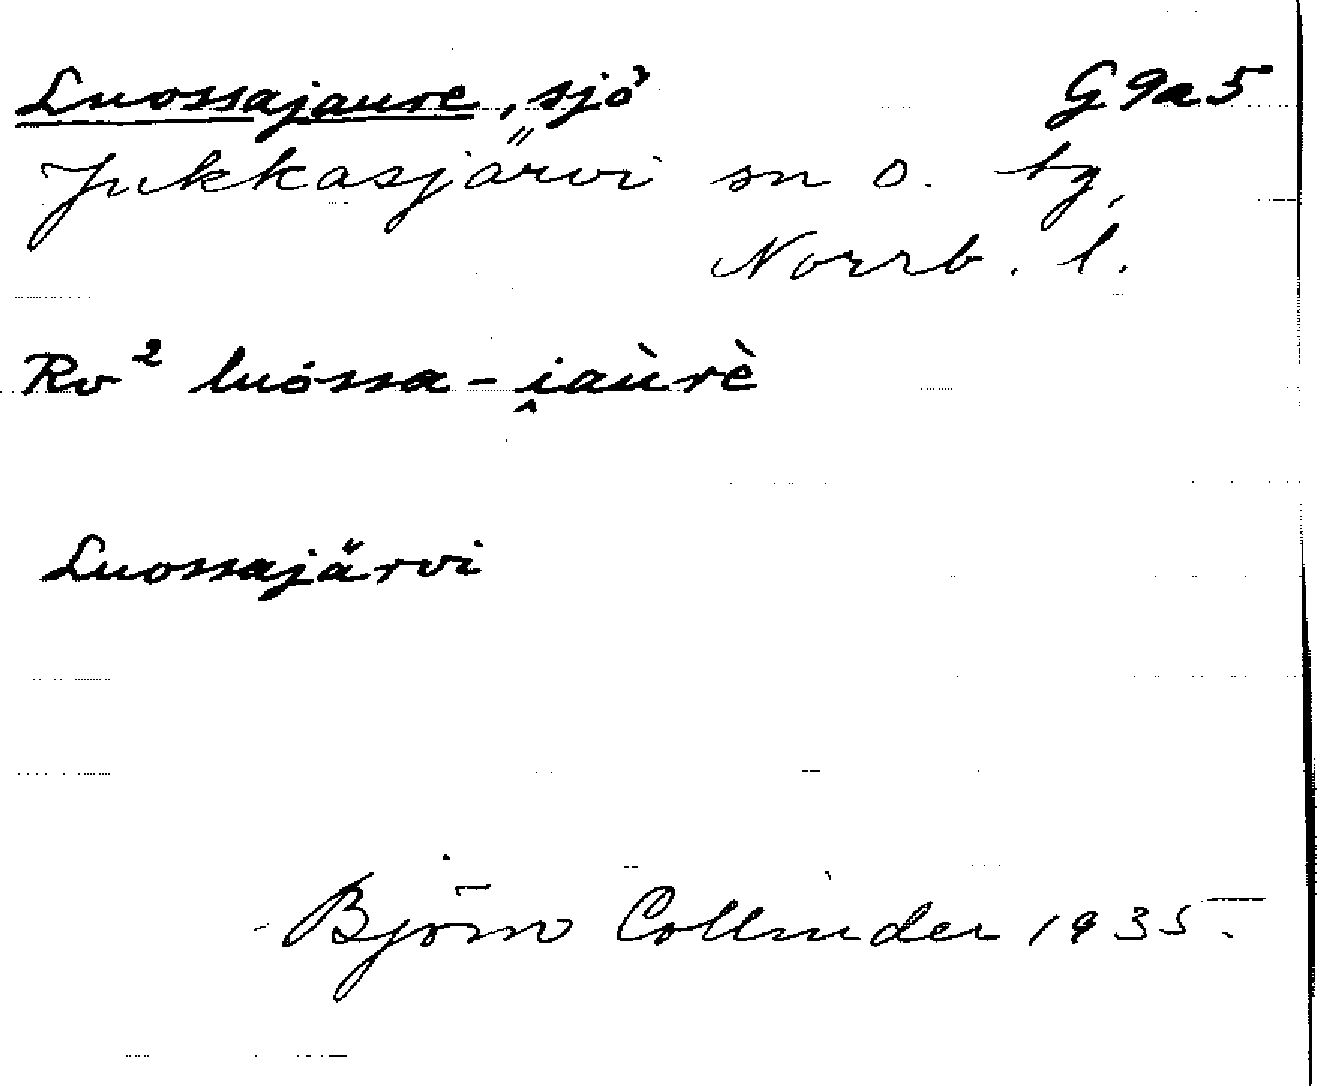 Luossajaure, sjö G 9a 5
Jukkasjärvi sn o. tg,
Norrb. l.
Rv² luóssa-i̭aùrè
Luossajärvi
Björn Collinder 1935.